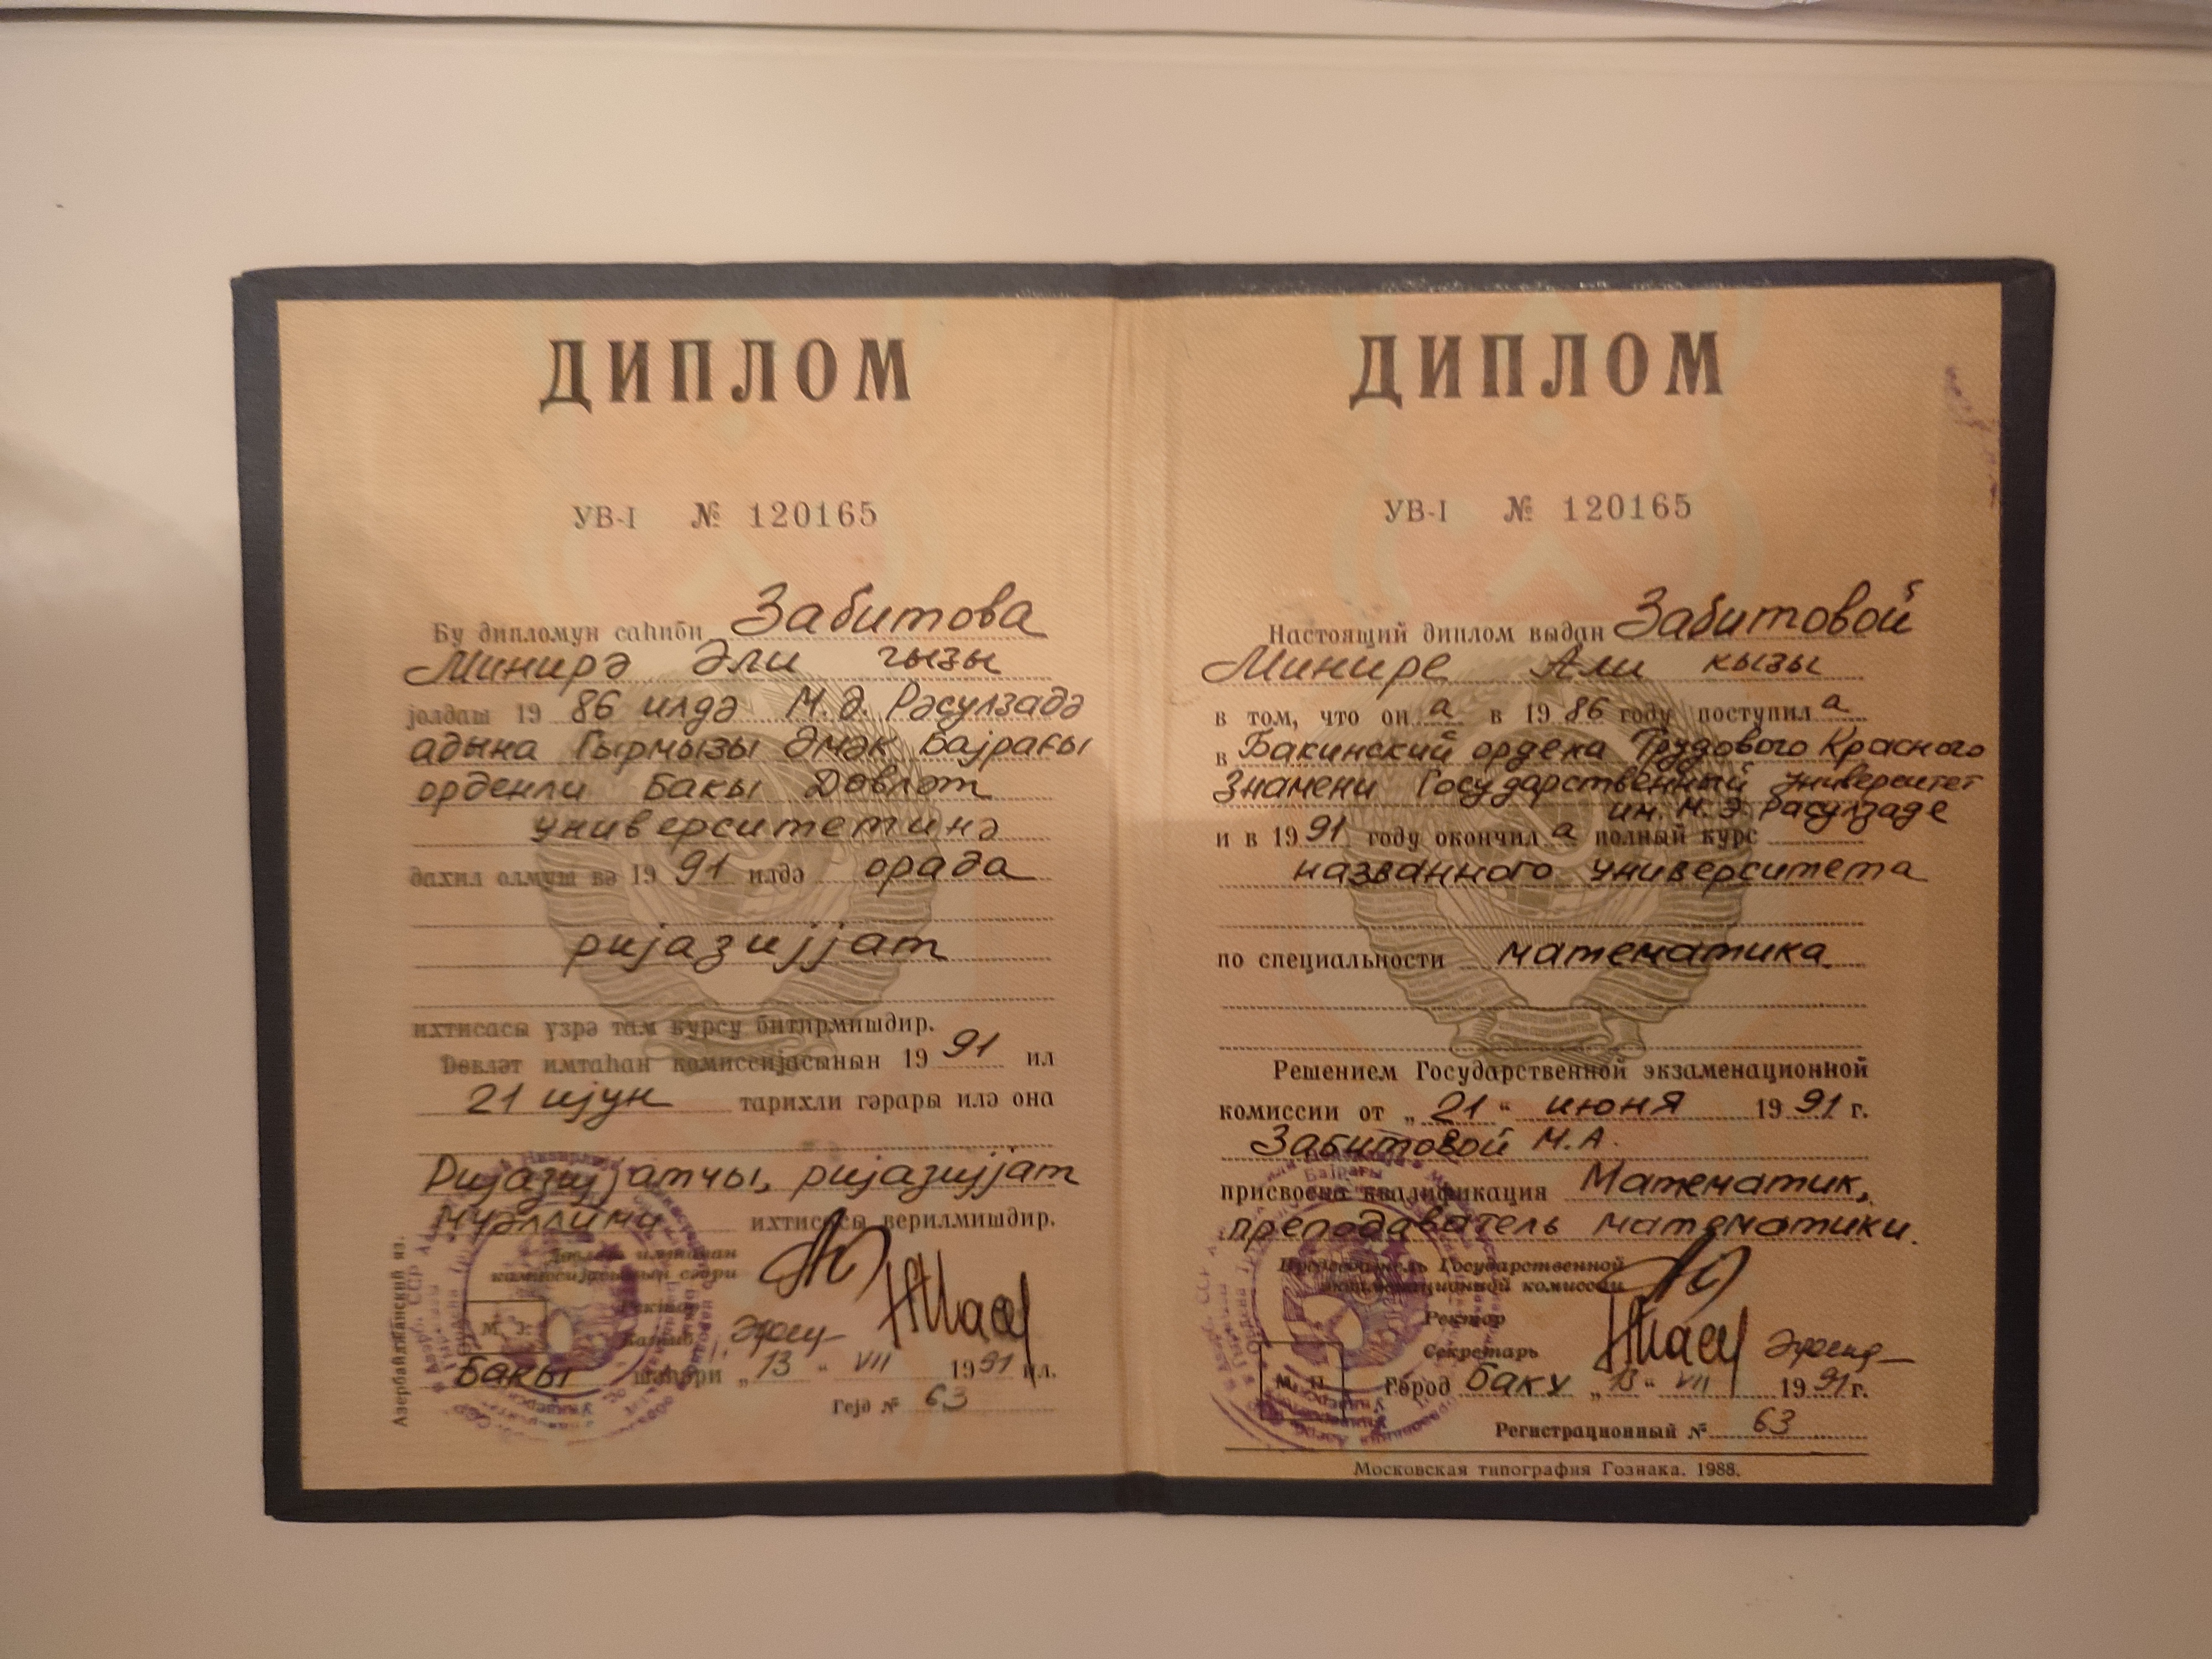 ДИПЛОМ
УВ-I № 120165
Бу дипломун саһиби Забитова
Минирә Әли гызы
јолдаш 19 86 илдә М.Ә. Рәсулзадә
адына Гырмызы Әмәк Бајрағы
орденли Бакы Дөвләт
университетинә
дахил олмуш вә 19 91 илдә орада
ријазијјат
ихтисасы үзрә там курсу битирмишдир.
Дөвләт имтаһан комиссијасынын 19 91 ил
21 ијун тарихли гәрары илә она
Ријазијјатчы, ријазијјат
мүәллими ихтисасы верилмишдир.
Дөвләт имтаһан
комиссијасынын сәдри
Ректор
Катиб
М. Ј.
Бакы шәһәри „13“ VII 1991 ил.
Гејд № 63
Азербайджанский яз.
ДИПЛОМ
УВ-I № 120165
Настоящий диплом выдан Забитовой
Минире Али кызы
в том, что он а в 19 86 году поступил а
в Бакинский ордена Трудового Красного
Знамени Государственный университет
им. М.Э. Расулзаде
и в 19 91 году окончил а полный курс
названного университета
по специальности математика
Решением Государственной экзаменационной
комиссии от „21“ июня 19 91 г.
Забитовой М.А.
присвоена квалификация Математик,
преподаватель математики.
Председатель Государственной
экзаменационной комиссии
Ректор
Секретарь
М. П.
Город Баку „13“ VII 19 91 г.
Регистрационный № 63
Московская типография Гознака. 1988.